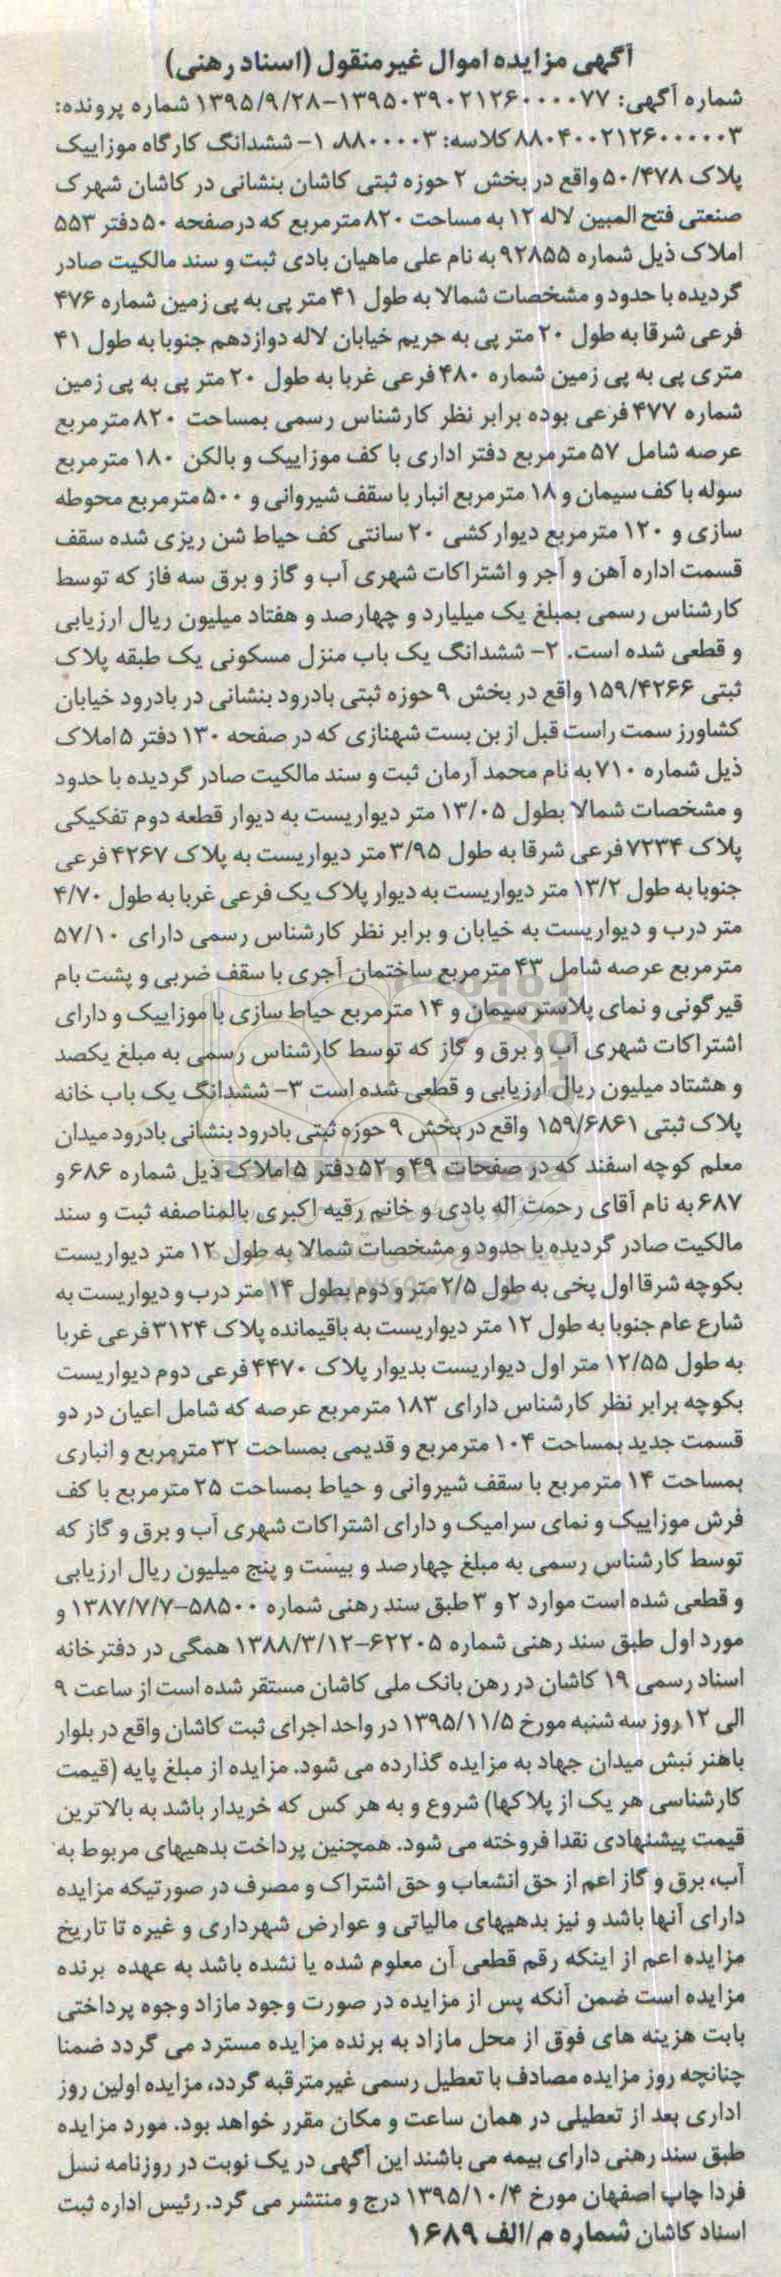 آگهی مزایده اموال غیرمنقول (اسناد رهنی)
شماره آگهی: ۱۳۹۵۰۳۹۰۲۱۲۶۰۰۰۰۷۷-۱۳۹۵/۹/۲۸ شماره پرونده:
۸۸۰۴۰۰۲۱۲۶۰۰۰۰۰۳ کلاسه: ۸۸۰۰۰۰۳، ۱- ششدانگ کارگاه موزاییک
پلاک ۵۰/۴۷۸ واقع در بخش ۲ حوزه ثبتی کاشان بنشانی در کاشان شهرک
صنعتی فتح المبین لاله ۱۲ به مساحت ۸۲۰ مترمربع که درصفحه ۵۰ دفتر ۵۵۳
املاک ذیل شماره ۹۲۸۵۵ به نام علی ماهیان بادی ثبت و سند مالکیت صادر
گردیده با حدود و مشخصات شمالا به طول ۴۱ متر پی به پی زمین شماره ۴۷۶
فرعی شرقا به طول ۲۰ متر پی به حریم خیابان لاله دوازدهم جنوبا به طول ۴۱
متری پی به پی زمین شماره ۴۸۰ فرعی غربا به طول ۲۰ متر پی به پی زمین
شماره ۴۷۷ فرعی بوده برابر نظر کارشناس رسمی بمساحت ۸۲۰ مترمربع
عرصه شامل ۵۷ مترمربع دفتر اداری با کف موزاییک و بالکن ۱۸۰ مترمربع
سوله با کف سیمان و ۱۸ مترمربع انبار با سقف شیروانی و ۵۰۰ مترمربع محوطه
سازی و ۱۲۰ مترمربع دیوارکشی ۲۰ سانتی کف حیاط شن ریزی شده سقف
قسمت اداره آهن و آجر و اشتراکات شهری آب و گاز و برق سه فاز که توسط
کارشناس رسمی بمبلغ یک میلیارد و چهارصد و هفتاد میلیون ریال ارزیابی
و قطعی شده است. ۲- ششدانگ یک باب منزل مسکونی یک طبقه پلاک
ثبتی ۱۵۹/۴۲۶۶ واقع در بخش ۹ حوزه ثبتی بادرود بنشانی در بادرود خیابان
کشاورز سمت راست قبل از بن بست شهنازی که در صفحه ۱۳۰ دفتر ۵ املاک
ذیل شماره ۷۱۰ به نام محمد آرمان ثبت و سند مالکیت صادر گردیده با حدود
و مشخصات شمالا بطول ۱۳/۰۵ متر دیواریست به دیوار قطعه دوم تفکیکی
پلاک ۷۲۳۴ فرعی شرقا به طول ۳/۹۵ متر دیواریست به پلاک ۴۲۶۷ فرعی
جنوبا به طول ۱۳/۲ متر دیواریست به دیوار پلاک یک فرعی غربا به طول ۴/۷۰
متر درب و دیواریست به خیابان و برابر نظر کارشناس رسمی دارای ۵۷/۱۰
مترمربع عرصه شامل ۴۳ مترمربع ساختمان آجری با سقف ضربی و پشت بام
قیرگونی و نمای پلاستر سیمان و ۱۴ مترمربع حیاط سازی با موزاییک و دارای
اشتراکات شهری آب و برق و گاز که توسط کارشناس رسمی به مبلغ یکصد
و هشتاد میلیون ریال ارزیابی و قطعی شده است ۳- ششدانگ یک باب خانه
پلاک ثبتی ۱۵۹/۶۸۶۱ واقع در بخش ۹ حوزه ثبتی بادرود بنشانی بادرود میدان
معلم کوچه اسفند که در صفحات ۴۹ و ۵۲ دفتر ۵ املاک ذیل شماره ۶۸۶ و
۶۸۷ به نام آقای رحمت اله بادی و خانم رقیه اکبری بالمناصفه ثبت و سند
مالکیت صادر گردیده با حدود و مشخصات شمالا به طول ۱۲ متر دیواریست
بکوچه شرقا اول پخی به طول ۲/۵ متر و دوم بطول ۱۴ متر درب و دیواریست به
شارع عام جنوبا به طول ۱۲ متر دیواریست به باقیمانده پلاک ۳۱۲۴ فرعی غربا
به طول ۱۲/۵۵ متر اول دیواریست بدیوار پلاک ۴۴۷۰ فرعی دوم دیواریست
بکوچه برابر نظر کارشناس دارای ۱۸۳ مترمربع عرصه که شامل اعیان در دو
قسمت جدید بمساحت ۱۰۴ مترمربع و قدیمی بمساحت ۳۲ مترمربع و انباری
بمساحت ۱۴ مترمربع با سقف شیروانی و حیاط بمساحت ۲۵ مترمربع با کف
فرش موزاییک و نمای سرامیک و دارای اشتراکات شهری آب و برق و گاز که
توسط کارشناس رسمی به مبلغ چهارصد و بیست و پنج میلیون ریال ارزیابی
و قطعی شده است موارد ۲ و ۳ طبق سند رهنی شماره ۵۸۵۰۰-۱۳۸۷/۷/۷ و
مورد اول طبق سند رهنی شماره ۶۲۲۰۵-۱۳۸۸/۳/۱۲ همگی در دفترخانه
اسناد رسمی ۱۹ کاشان در رهن بانک ملی کاشان مستقر شده است از ساعت ۹
الی ۱۲ روز سه شنبه مورخ ۱۳۹۵/۱۱/۵ در واحد اجرای ثبت کاشان واقع در بلوار
باهنر نبش میدان جهاد به مزایده گذارده می شود. مزایده از مبلغ پایه (قیمت
کارشناسی هر یک از پلاکها) شروع و به هر کس که خریدار باشد به بالاترین
قیمت پیشنهادی نقدا فروخته می شود. همچنین پرداخت بدهیهای مربوط به
آب، برق و گاز اعم از حق انشعاب و حق اشتراک و مصرف در صورتیکه مزایده
دارای آنها باشد و نیز بدهیهای مالیاتی و عوارض شهرداری و غیره تا تاریخ
مزایده اعم از اینکه رقم قطعی آن معلوم شده یا نشده باشد به عهده برنده
مزایده است ضمن آنکه پس از مزایده در صورت وجود مازاد وجوه پرداختی
بابت هزینه های فوق از محل مازاد به برنده مزایده مسترد می گردد ضمنا
چنانچه روز مزایده مصادف با تعطیل رسمی غیرمترقبه گردد، مزایده اولین روز
اداری بعد از تعطیلی در همان ساعت و مکان مقرر خواهد بود. مورد مزایده
طبق سند رهنی دارای بیمه می باشند این آگهی در یک نوبت در روزنامه نسل
فردا چاپ اصفهان مورخ ۱۳۹۵/۱۰/۴ درج و منتشر می گرد. رئیس اداره ثبت
اسناد کاشان شماره م/الف ۱۶۸۹